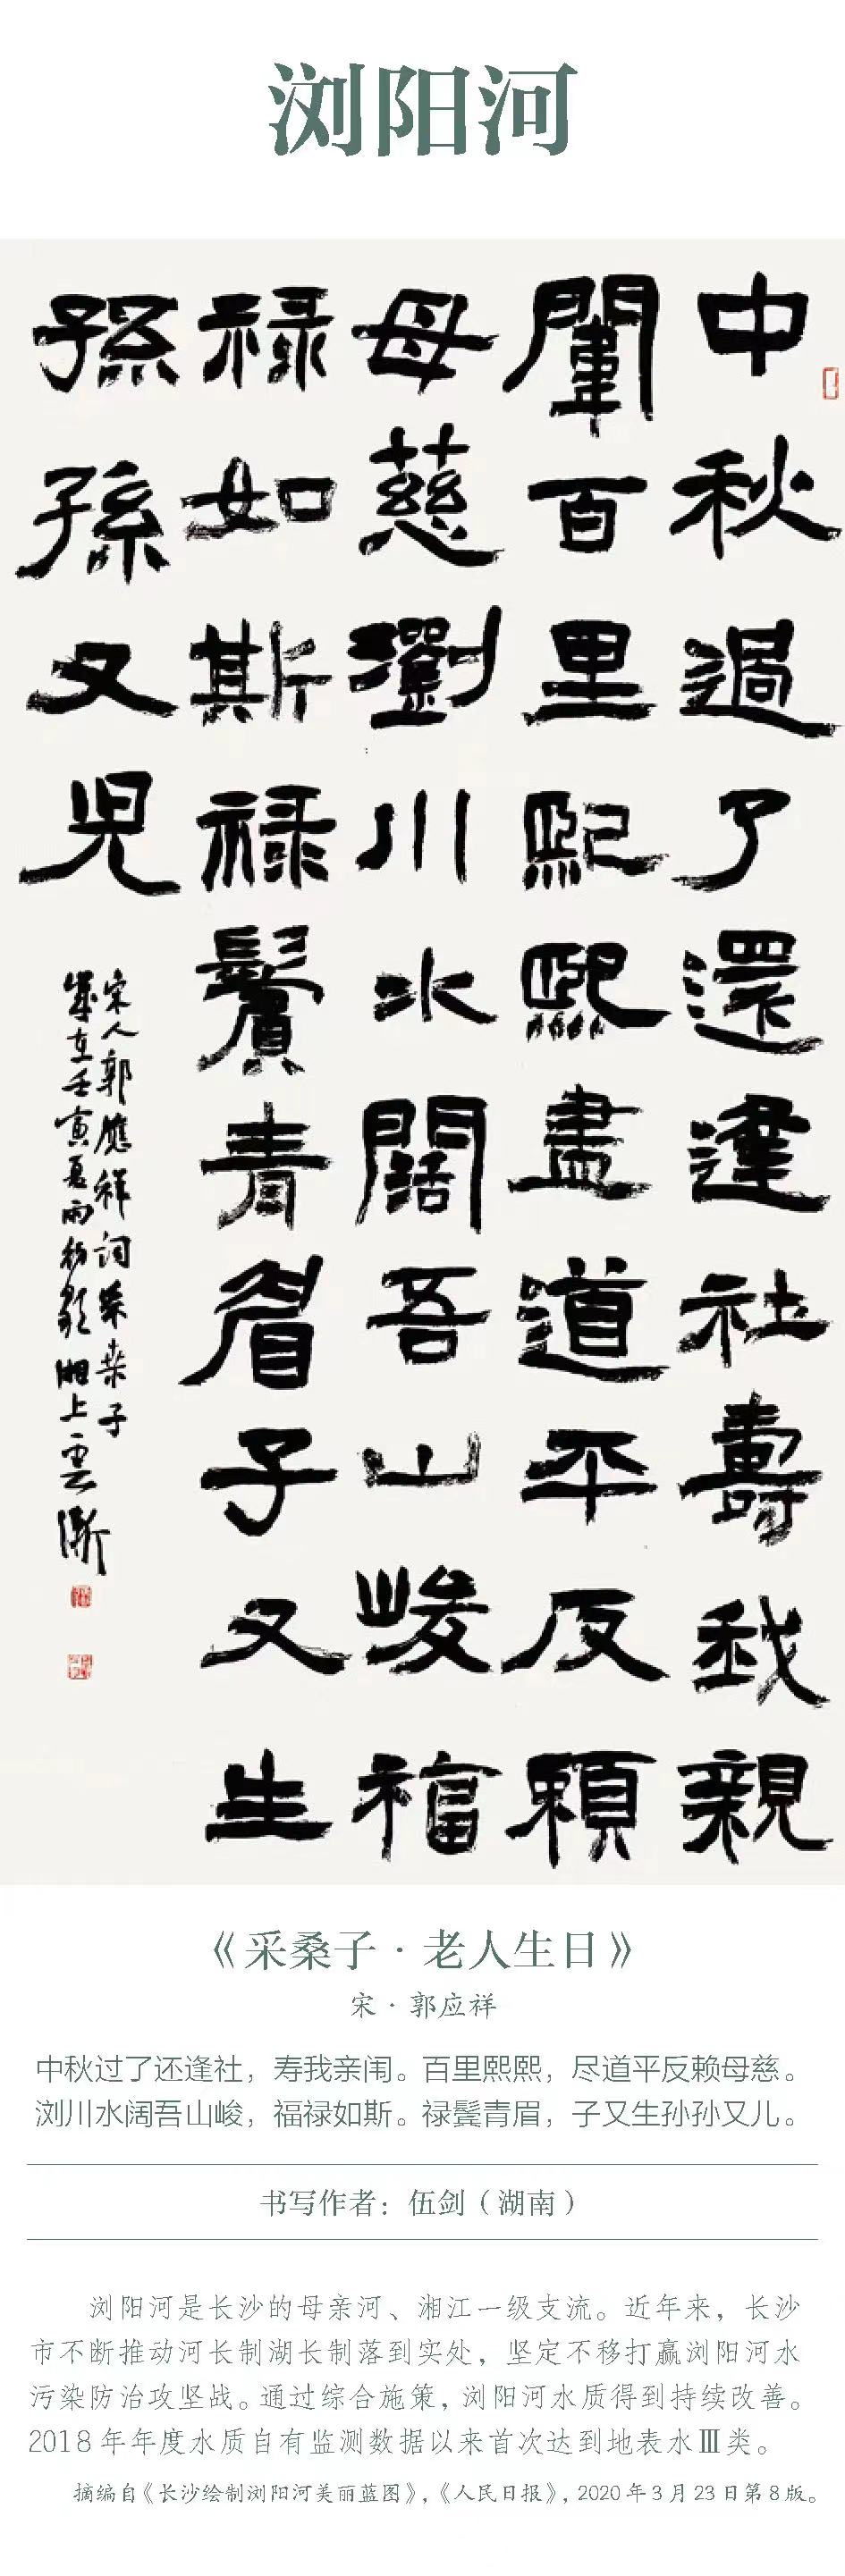 浏阳河
中秋過了還逢社壽我親
闈百里熙熙盡道平反賴
母慈瀏川水闊吾山峻福
禄如斯禄鬢青眉子又生
孫孫又児
宋人郭應祥詞采桑子
歲在壬寅夏雨初歇湘上雲
《采桑子·老人生日》
宋·郭应祥
中秋过了还逢社，寿我亲闱。百里熙熙，尽道平反赖母慈。
浏川水阔吾山峻，福禄如斯。禄鬓青眉，子又生孙孙又儿。
书写作者：伍剑（湖南）
浏阳河是长沙的母亲河、湘江一级支流。近年来，长沙
市不断推动河长制湖长制落到实处，坚定不移打赢浏阳河水
污染防治攻坚战。通过综合施策，浏阳河水质得到持续改善。
2018年年度水质自有监测数据以来首次达到地表水Ⅲ类。
摘编自《长沙绘制浏阳河美丽蓝图》，《人民日报》，2020年3月23日第8版。